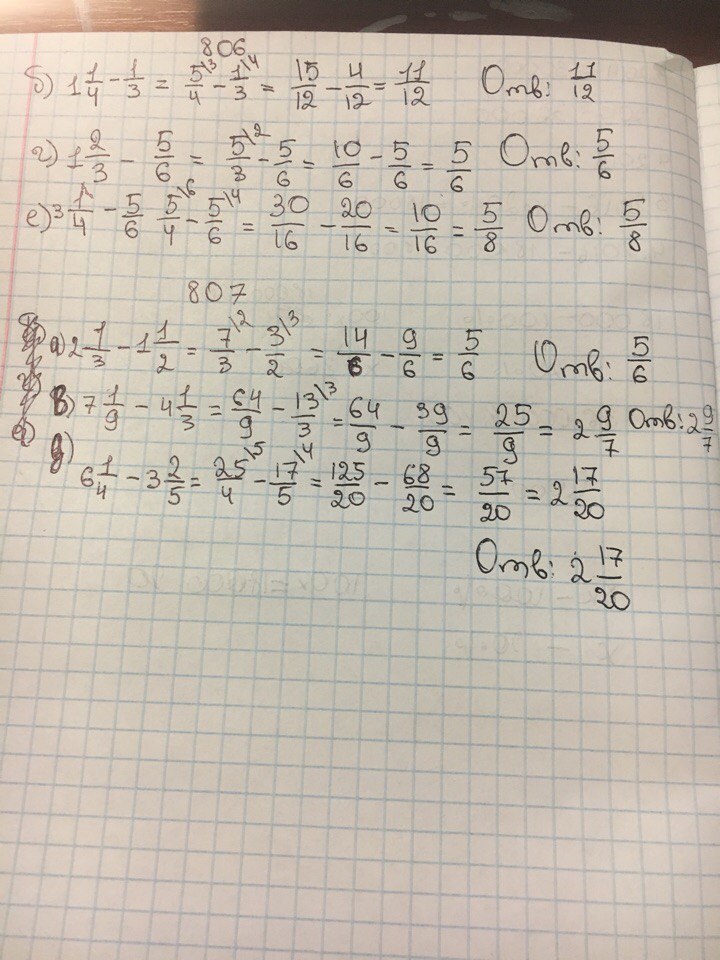 806
б) 1 1/4 - 1/3 = 5\3/4 - 1\4/3 = 15/12 - 4/12 = 11/12 Отв: 11/12
г) 1 2/3 - 5/6 = 5\2/3 - 5/6 = 10/6 - 5/6 = 5/6 Отв: 5/6
е) 3 1/4 - 5/6 5\6/4 - 5\4/6 = 30/16 - 20/16 = 10/16 = 5/8 Отв: 5/8
807
а) 2 1/3 - 1 1/2 = 7\2/3 - 3\3/2 = 14/6 - 9/6 = 5/6 Отв: 5/6
в) 7 1/9 - 4 1/3 = 64/9 - 13\3/3 = 64/9 - 39/9 = 25/9 = 2 9/7 Отв: 2 9/7
д) 6 1/4 - 3 2/5 = 25\5/4 - 17\4/5 = 125/20 - 68/20 = 57/20 = 2 17/20
Отв: 2 17/20